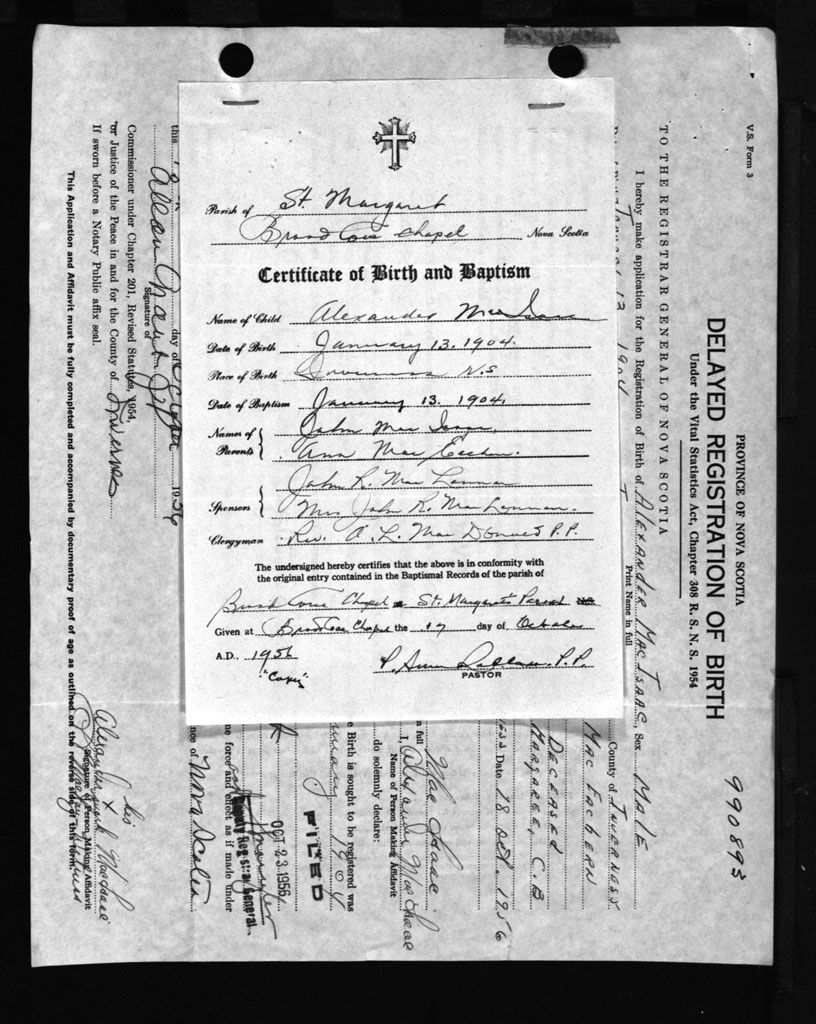 Parish of St. Margaret
Broad Cove Chapel Nova Scotia
Certificate of Birth and Baptism
Name of Child Alexander Mac Isaac
Date of Birth January 13. 1904.
Place of Birth Inverness N.S
Date of Baptism January 13. 1904.
Names of Parents John Mac Isaac
Ann Mac Eachern.
Sponsors John R. Mac Lennan
Mrs John R. Mac Lennan.
Clergyman Rev. A. L. Mac Donald P.P.
The undersigned hereby certifies that the above is in conformity with
the original entry contained in the Baptismal Records of the parish of
Broad Cove Chapel St. Margarets Parish NS
Given at Broad Cove Chapel the 17 day of October
A.D., 1956 P.P.
"Copy" PASTOR
V.S. Form 3
PROVINCE OF NOVA SCOTIA
DELAYED REGISTRATION OF BIRTH
Under the Vital Statistics Act, Chapter 308 R. S. N. S. 1954
990895
TO THE REGISTRAR GENERAL OF NOVA SCOTIA
I hereby make application for the Registration of Birth of ALEXANDER MAC ISAAC, Sex MALE
Print Name in full
13 1904 County of INVERNESS
MAC EACHERN
DECEASED
MARGAREE, C.B
Date 18 Oct. 1956
in full Mac Isaac
Name of Person Making Affidavit
I, Alexander Mac Isaac
do solemnly declare:
e Birth is sought to be registered was
1904
FILED
OCT 23 1956
Deputy Registrar General
me force and effect as if made under
nce of Nova Scotia
this day of October 1956
Signature of
Commissioner under Chapter 201, Revised Statutes, 1954,
or Justice of the Peace in and for the County of Inverness
If sworn before a Notary Public affix seal.
his
Alexander X Mac Isaac
mark
Signature of Person Making Affidavit
This Application and Affidavit must be fully completed and accompanied by documentary proof of age as outlined on the reverse side of this form.